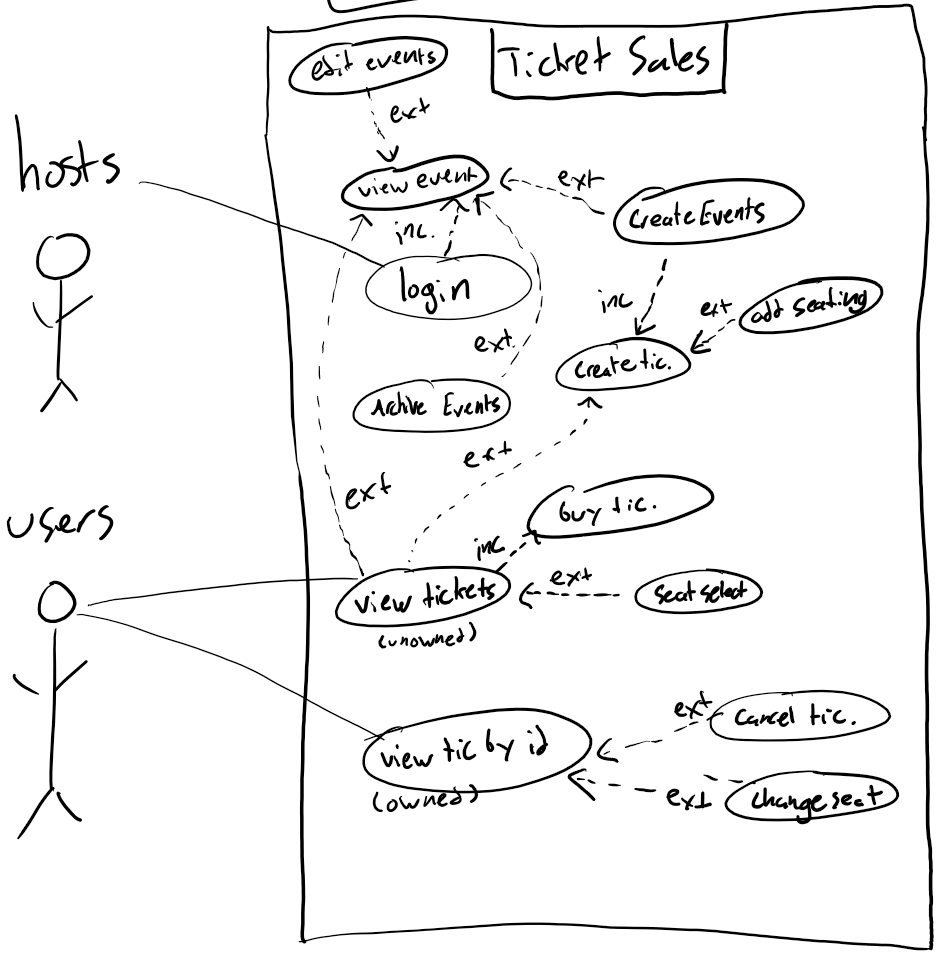 Ticket Sales
edit events
ext
hosts
view event
ext
Create Events
inc.
login
inc
ext
add seating
ext
Create tic.
Archive Events
ext
ext
users
buy tic.
inc
ext
view tickets
seat select
(unowned)
ext
cancel tic.
view tic by id
(owned)
ext
change seat